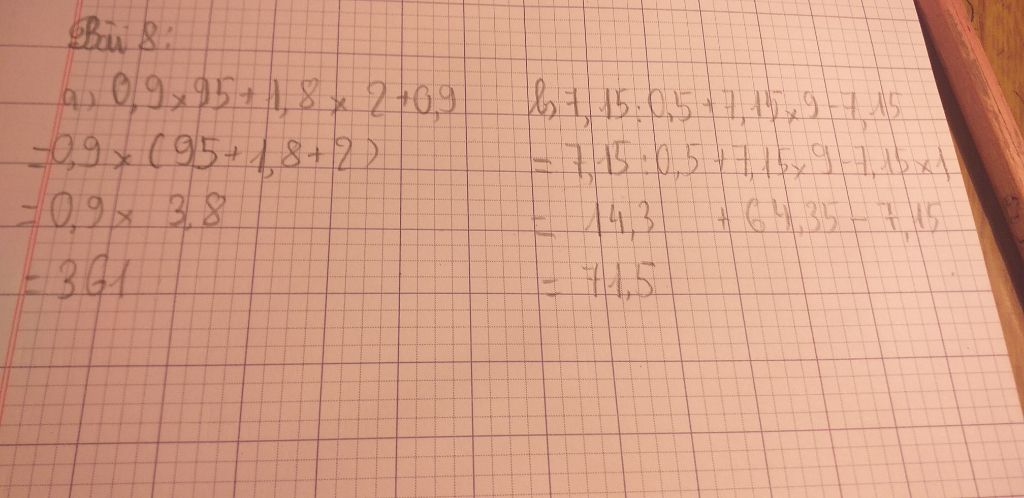 Bài 8:
a) 0,9 x 95 + 1,8 x 2 + 0,9
= 0,9 x (95 + 1,8 + 2)
= 0,9 x 3,8
= 361
b) 7,15 : 0,5 + 7,15 x 9 - 7,15
= 7,15 : 0,5 + 7,15 x 9 - 7,15 x 1
= 14,3 + 64,35 - 7,15
= 71,5